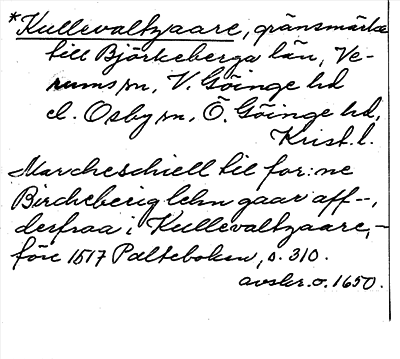 *Kullevaltzaare, gränsmärke
till Björkeberga län, Ve-
rums sn, V. Göinge hd
el. Osby sn, Ö. Göinge hd,
Krist. l.
Marcheschiell til for:ne
Bircheberig lehn gaar aff --,
derfraa i Kullevaltzaare, -
före 1517 Palteboken, s. 310.
avskr. o. 1650.